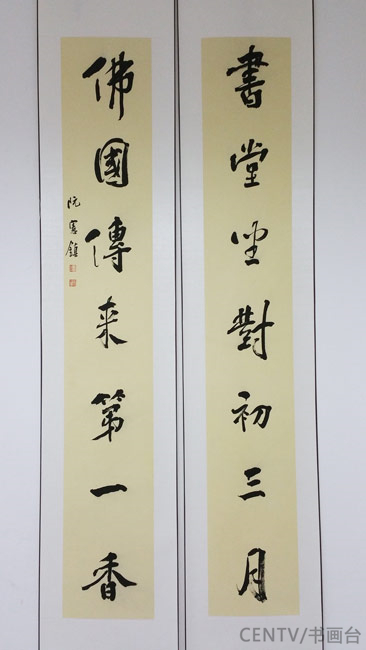 書堂坐對初三月
佛國傳来第一香
阮憲鎮
CENTV/书画台